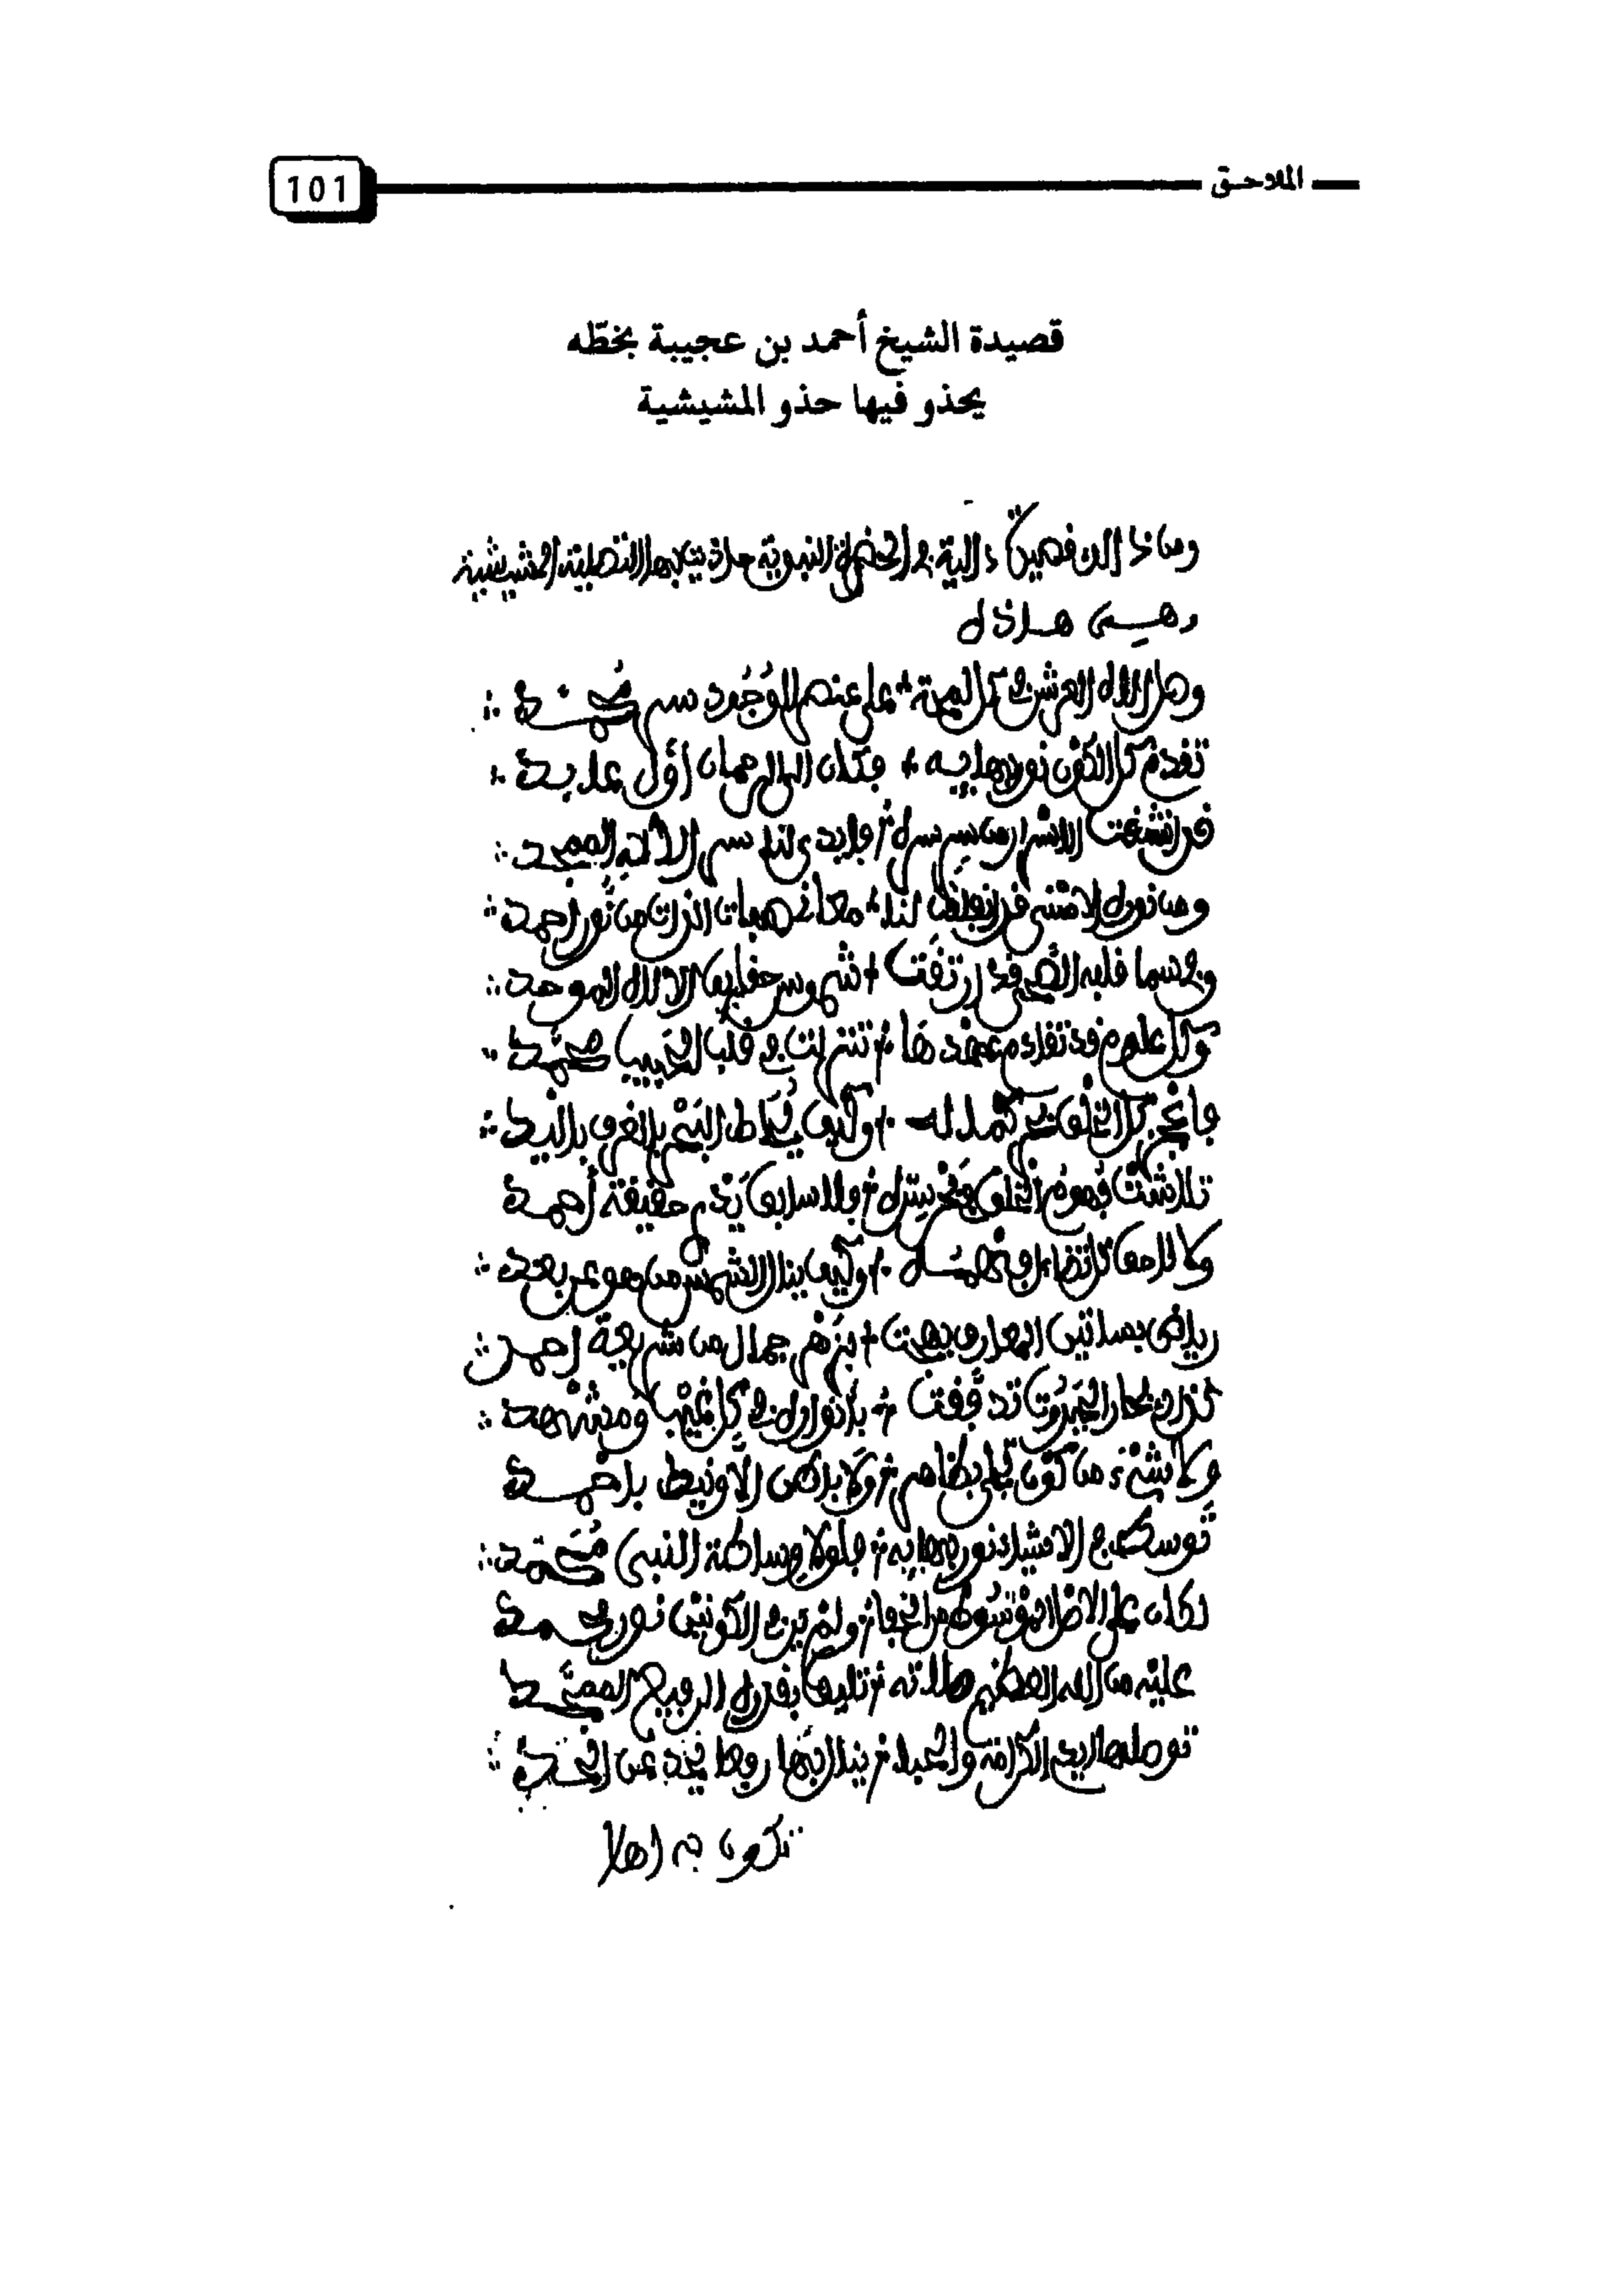 الملاحق
101
قصيدة الشيخ أحمد بن عجيبة بخطّه
يحذو فيها حذو المشيشية
ومن ذلك قصيدة دالية في الحضرة النبوية حاذيت بها التصلية المشيشية
وهي هذه
وصل إله العرش في كل لمحة * على عنصر الوجود سر محمد
تقدم كل الكون نور بهايه * فكان إلى الرحمان أول عابد
قد انشقت الاسرار من سر سره * وابدى لنا سر الالاه الممجد
ومن نوره الاسنى قد انفلقت لنا * معاني صفات الذات من نور احمد
وفي سما قلبه الصفي قد ارتقت * شموس حقايق الالاه الموحد
وكل علوم قد تقادم عهدها * تنزلت في قلب الحبيب محمد
فاعجز كل الخلق عن كماله * وكيف يحاط البحر بالغرف باليد
تلاشت فهوم الخلق عن سره * فلا سابق يدري حقيقة أحمد
ولا لاحق كل تضاءل فهمه * وكيف ينال الشمس من هو عن بعد
رياض بساتين المعارف بهجت * بزهر جمال من شريعة احمد
كذاك بحار الجبروت تدفقت * بانواره في كل غيب ومشهد
ولا شيء من كون تجلى بظاهر * ولا باطن الا ونيط باحمد
توسط في الاشياء نور بهايه * فلولا وساطة النبي محمد
لكان على الاصل الموسوط من الخفا * ولم ير في الكونين نور
عليه من الله العظيم صلاته * تليق بقدره الرفيع الممجد
توصلها ايدي الكرامة والحيا * ينال بها روحا عن الحد
تكون به اهلا